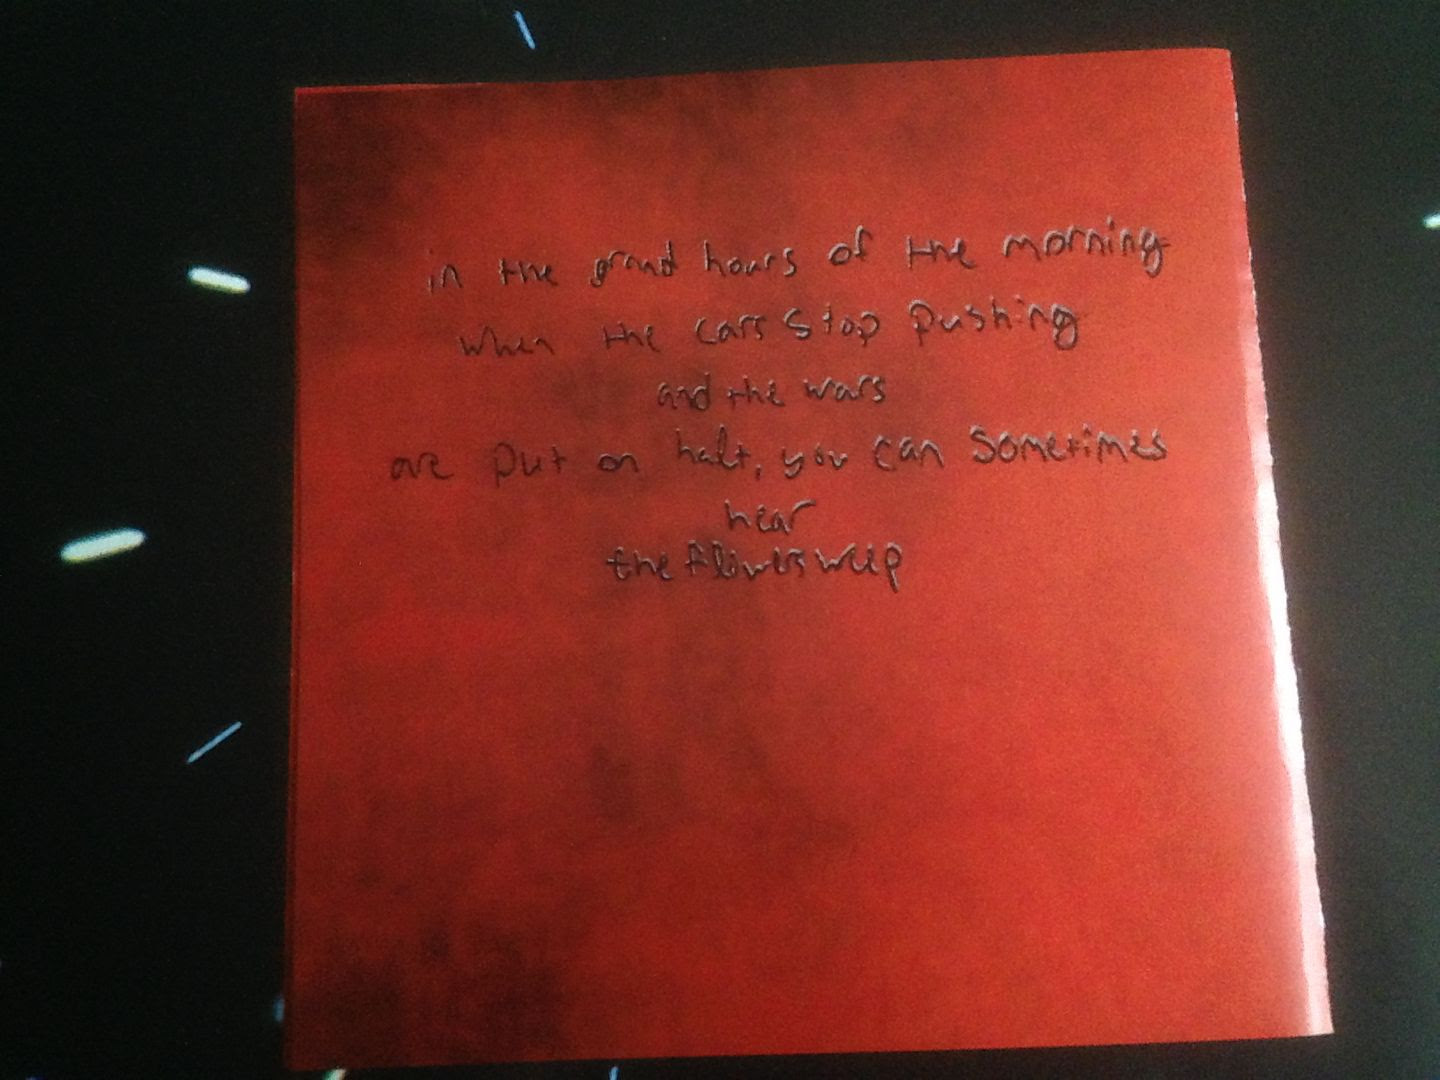 in the grand hours of the morning
when the cars stop pushing
and the wars
are put on halt, you can sometimes
hear
the flowers weep